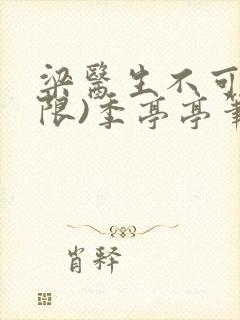 梁医生不可
限)季亭亭笔
肖释